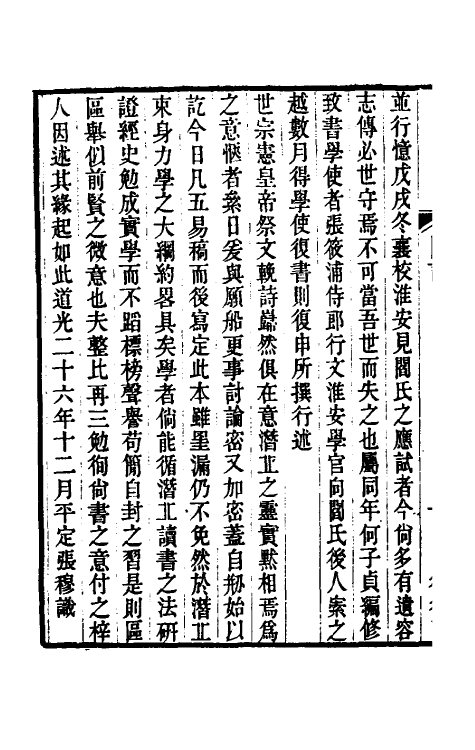 並行憶戊戌冬襄校淮安見閻氏之應試者今尙多有遺容
志傳必世守焉不可當吾世而失之也屬同年何子貞編修
致書學使者張筱浦侍郎行文淮安學官向閻氏後人索之
越數月得學使復書則復申所撰行述
世宗憲皇帝祭文輓詩巋然俱在意潛丠之靈實默相焉爲
之意愜者絫日爰與願船更事討論密又加密蓋自剏始以
訖今日凡五易稿而後寫定此本雖罣漏仍不免然於潛丠
束身力學之大綱約畧具矣學者倘能循潛丠讀書之法硏
證經史勉成實學而不蹈標榜聲譽苟簡自封之習是則區
區舉似前賢之微意也夫整比再三勉徇尙書之意付之梓
人因述其緣起如此道光二十六年十二月平定張穆識